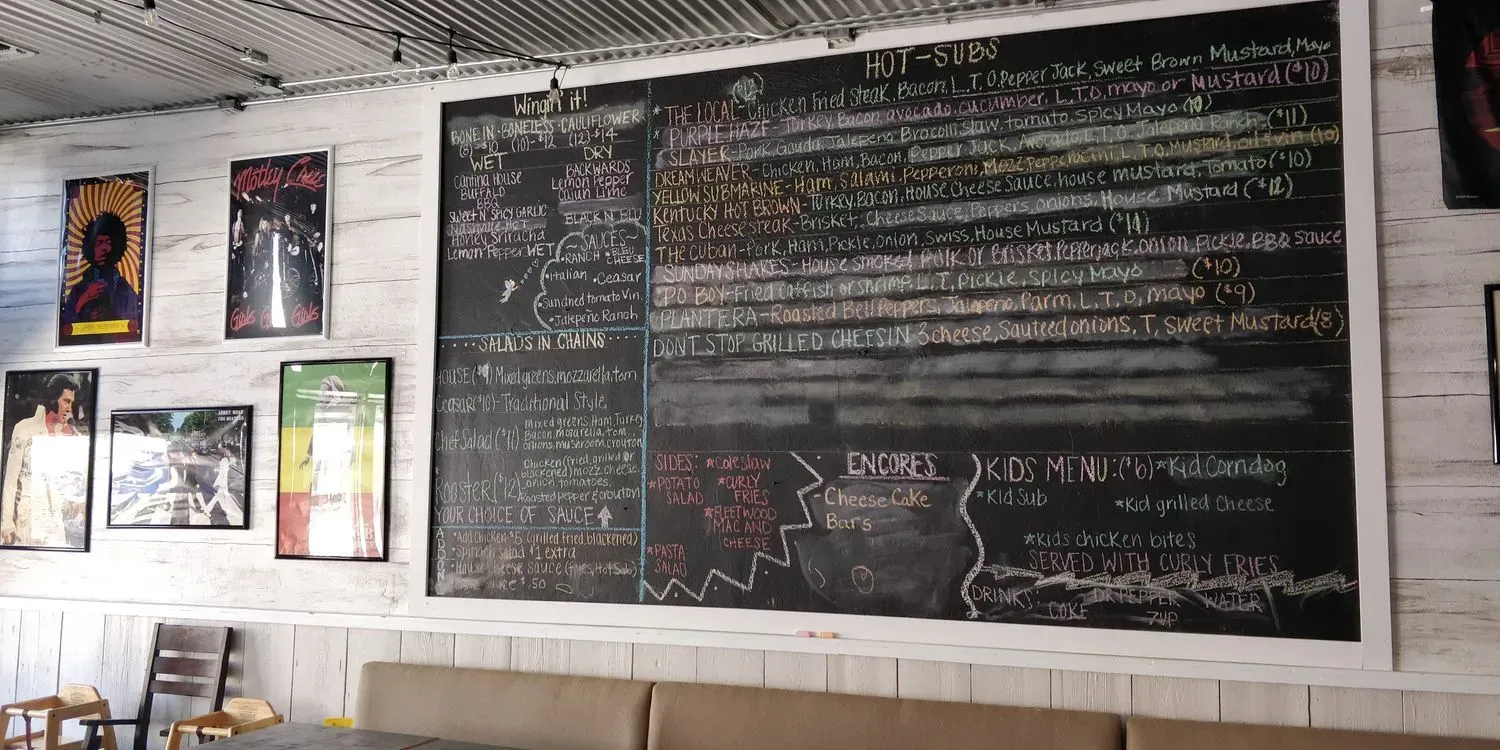 Wingin it!
BONE IN · BONELESS · CAULIFLOWER
(8)-$10 (10)-$12 (12)-$14
WET
Cantina House
BUFFALO
BBQ
Sweet N Spicy Garlic
Nashville HOT
Honey Sriracha
Lemon Pepper WET
DRY
BACKWARDS
Lemon Pepper
Cajun Lime
BLACK N BLU
~SAUCES~
·RANCH ·BLEU CHEESE
·Italian ·Ceasar
Sundried tomato Vin.
·Jalepeño Ranch
SALADS IN CHAINS
HOUSE ($9) Mixed greens, mozzarella, tom
Ceasar ($10)-Traditional Style
Chef Salad ($11) mixed greens, Ham, Turkey
Bacon, mozarella, tom.,
onions, mushroom, crouton
Rooster ($12) Chicken (fried, grilled or
blackened) mozz cheese,
onion, tomatoes,
Roasted pepper & crouton
YOUR CHOICE OF SAUCE
ADD ON
·Add chicken $5 (grilled, fried, blackened)
·Spinach salad $1 extra
·House cheese sauce (fries, Hot Sub)
$.50
HOT-SUBS
* THE LOCAL-(12) Chicken Fried Steak, Bacon, L.T.O, Pepper Jack, Sweet Brown Mustard, Mayo
* PURPLE HAZE-Turkey, Bacon, avocado, cucumber, L.T.O, mayo or Mustard ($10)
* SLAYER-Pork, Gouda, Jalepeño Brocolli Slaw, Tomato, Spicy Mayo (10)
DREAM WEAVER-Chicken, Ham, Bacon, Pepper Jack, Avocado, L.T.O, Jalepeño Ranch ($11)
YELLOW SUBMARINE-Ham, Salami, Pepperoni, Mozz, Pepperocini, L.T.O, Mustard, oil & vin (10)
KENTUCKY HOT BROWN-Turkey, Bacon, House Cheese Sauce, house mustard, Tomato ($10)
Texas Cheese steak-Brisket, Cheese Sauce, Peppers, onions, House Mustard ($12)
THE CUBAN-Pork, Ham, Pickle, Onion, Swiss, House Mustard ($11)
SUNDAY SHAKES-House smoked Pulk or Brisket, Pepperjack, Onion, Pickle, BBQ Sauce
PO BOY-Fried catfish or shrimp, L, T, pickle, Spicy Mayo ($10)
PLANTERA-Roasted Bell Peppers, Jalapeño, Parm, L, T, O, mayo ($9)
DONT STOP GRILLED CHEESIN 3 cheese, Sauteed onions, T, Sweet Mustard (8)
SIDES:
*POTATO SALAD
*Coleslaw
*CURLY FRIES
*FLEETWOOD MAC AND CHEESE
*PASTA SALAD
ENCORES
-Cheese Cake
Bars
KIDS MENU: ($6) *Kid Corndog
*Kid Sub
*Kid grilled Cheese
*Kids chicken bites
SERVED WITH CURLY FRIES
DRINKS: COKE DR PEPPER 7UP WATER
Mötley Crüe
Girls Girls Girls
ABBEY ROAD
THE BEATLES